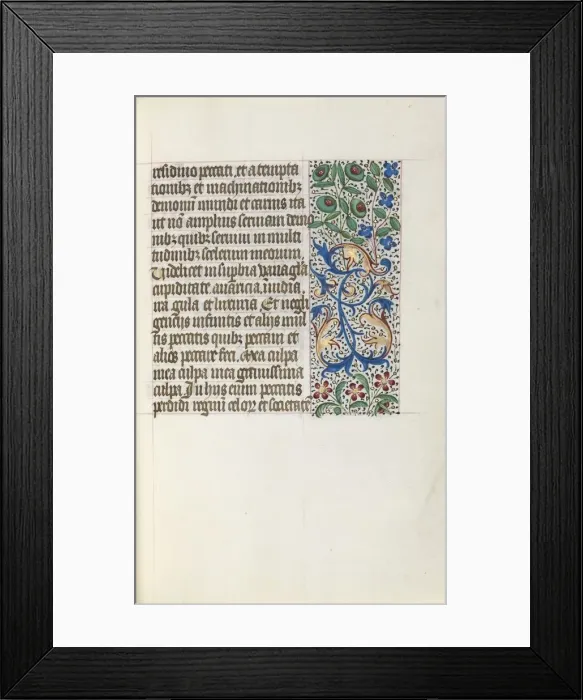 residuo peccati, et a tempta
tionibꝫ et machinationibꝫ
demonū mundi et carnis ita
ut nō amplius seruiam
nibꝫ quibꝫ seruiui in multi
tudinibꝫ scelerum meorum.
Videlicet in supbia vana glā
cupiditate auaricia inuidia
ira gula et luxuria Et negli
gencijs infinitis et alijs mul
tis peccatis quibꝫ peccaui et
alios peccare feci, Mea culpa
mea culpa mea grauissima
culpa, In hijs enim peccatis
perdidi regnū celoꝝ et societatē